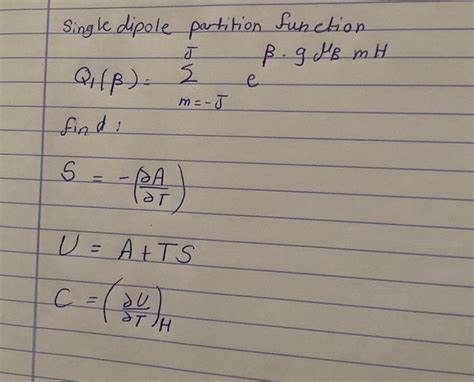 Single dipole partition function
Q₁(β) = Σ_{m=-J}^{J} e^{β · g μ_B m H}
find :
S = -(∂A/∂T)
U = A + TS
C = (∂U/∂T)_H